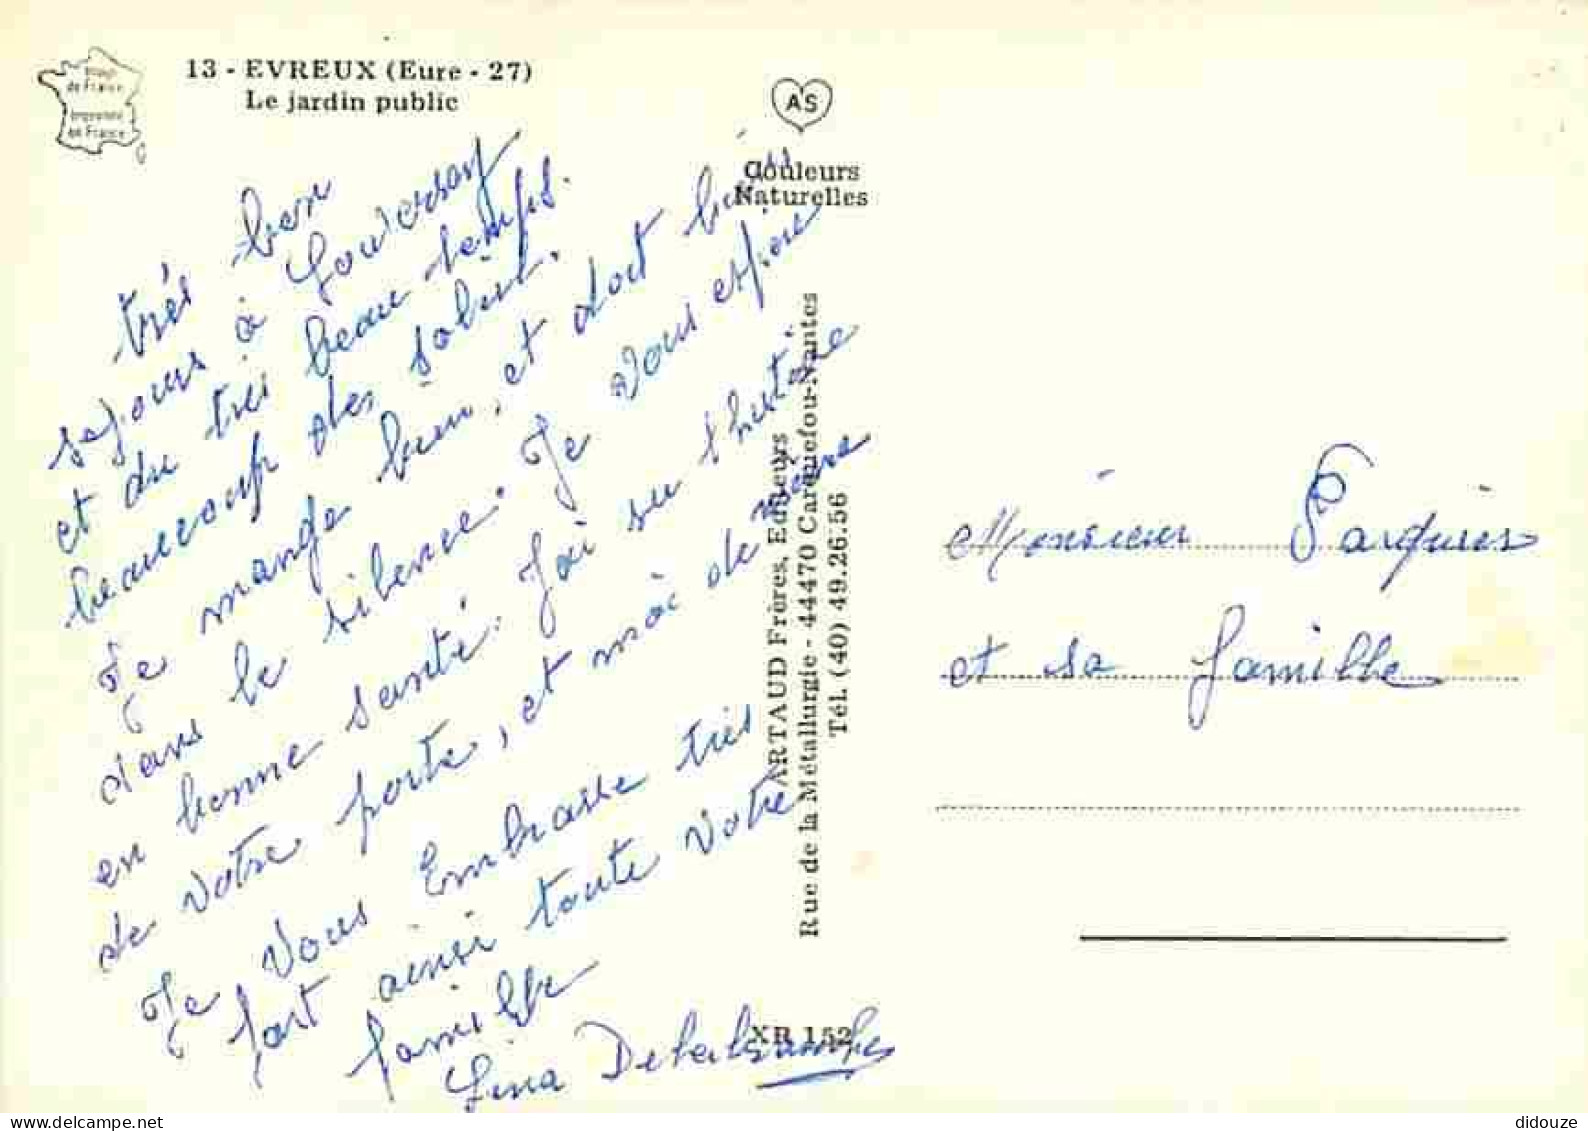 13 - EVREUX (Eure - 27)
Le jardin public
image
de France
imprimé
en France
AS
Couleurs
Naturelles
très bon
sejours à
et du très beau temps.
beaucoup des soleil.
Je mange bien, et dort bien
dans le silence. Je vous espère
en bonne santé. J'ai su l'histoire
de votre porte, et moi de même
Je vous Embrasse très
fort ainsi toute votre
famille
Lina
ARTAUD Frères, Editeurs
Rue de la Métallurgie - 44470 Carquefou-Nantes
Tél. (40) 49.26.56
XR 152
Monsieur
et sa famille
didouze